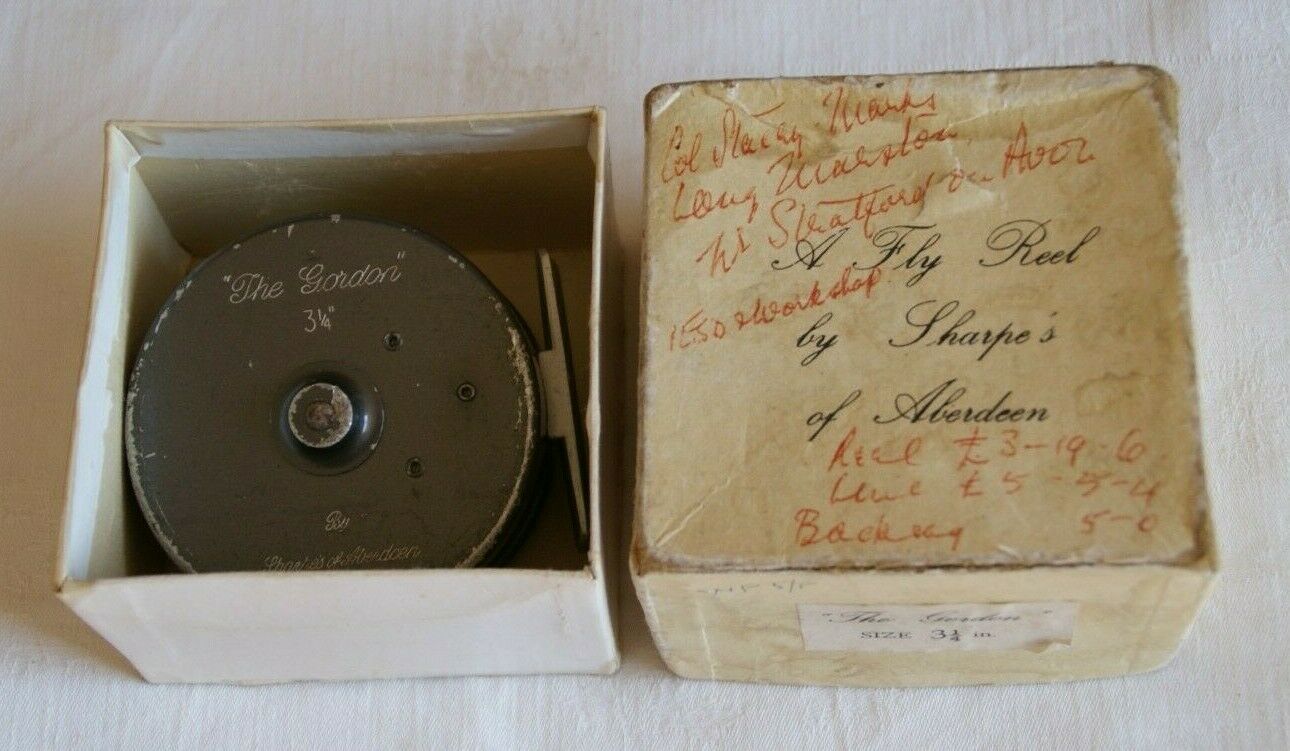 "The Gordon"
3¼"
By
Sharpe's of Aberdeen
Col Stacey Marks
Long Marston,
Nr Stratford on Avon
workshop
A Fly Reel
by Sharpe's
of Aberdeen
Reel £3-19-6
Line £5-5-4
Backing 5-0
"The Gordon"
SIZE 3¼ in.